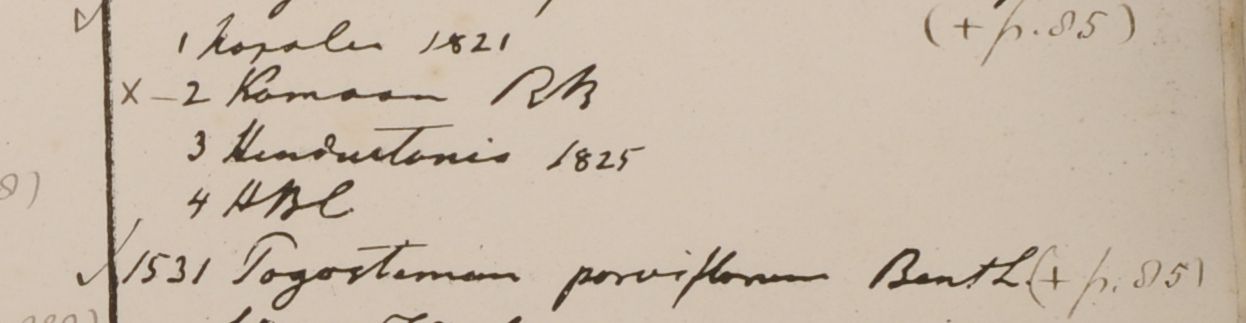 (+ p. 85)
1 Napalia 1821
x - 2 Kamaon RB
3 Hindustania 1825
4 HBC
✓ 1531 Pogostemon parviflorum Benth. (+ p. 85)